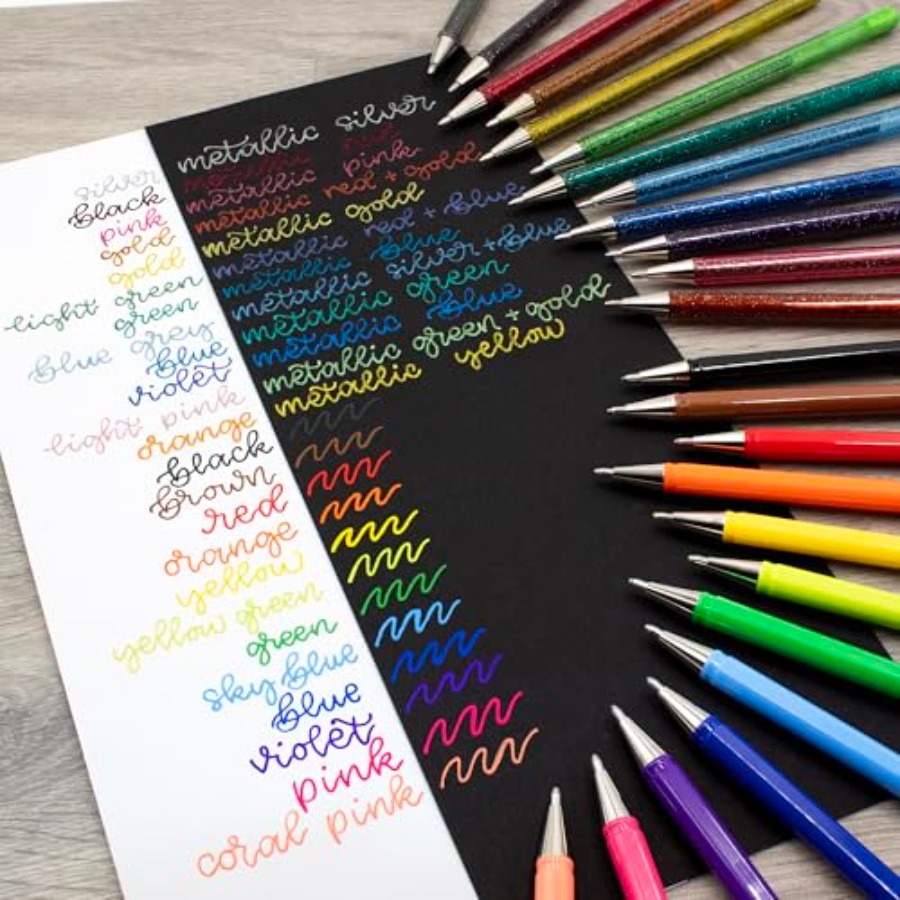 silver
black
pink
gold
gold
light green
green
blue grey
blue
violet
light pink
orange
black
brown
red
orange
yellow
yellow green
green
sky blue
blue
violet
pink
coral pink
metallic silver
metallic red
metallic pink
metallic red + gold
metallic gold
metallic red + blue
metallic blue
metallic silver + blue
metallic green
metallic blue
metallic green + gold
metallic yellow